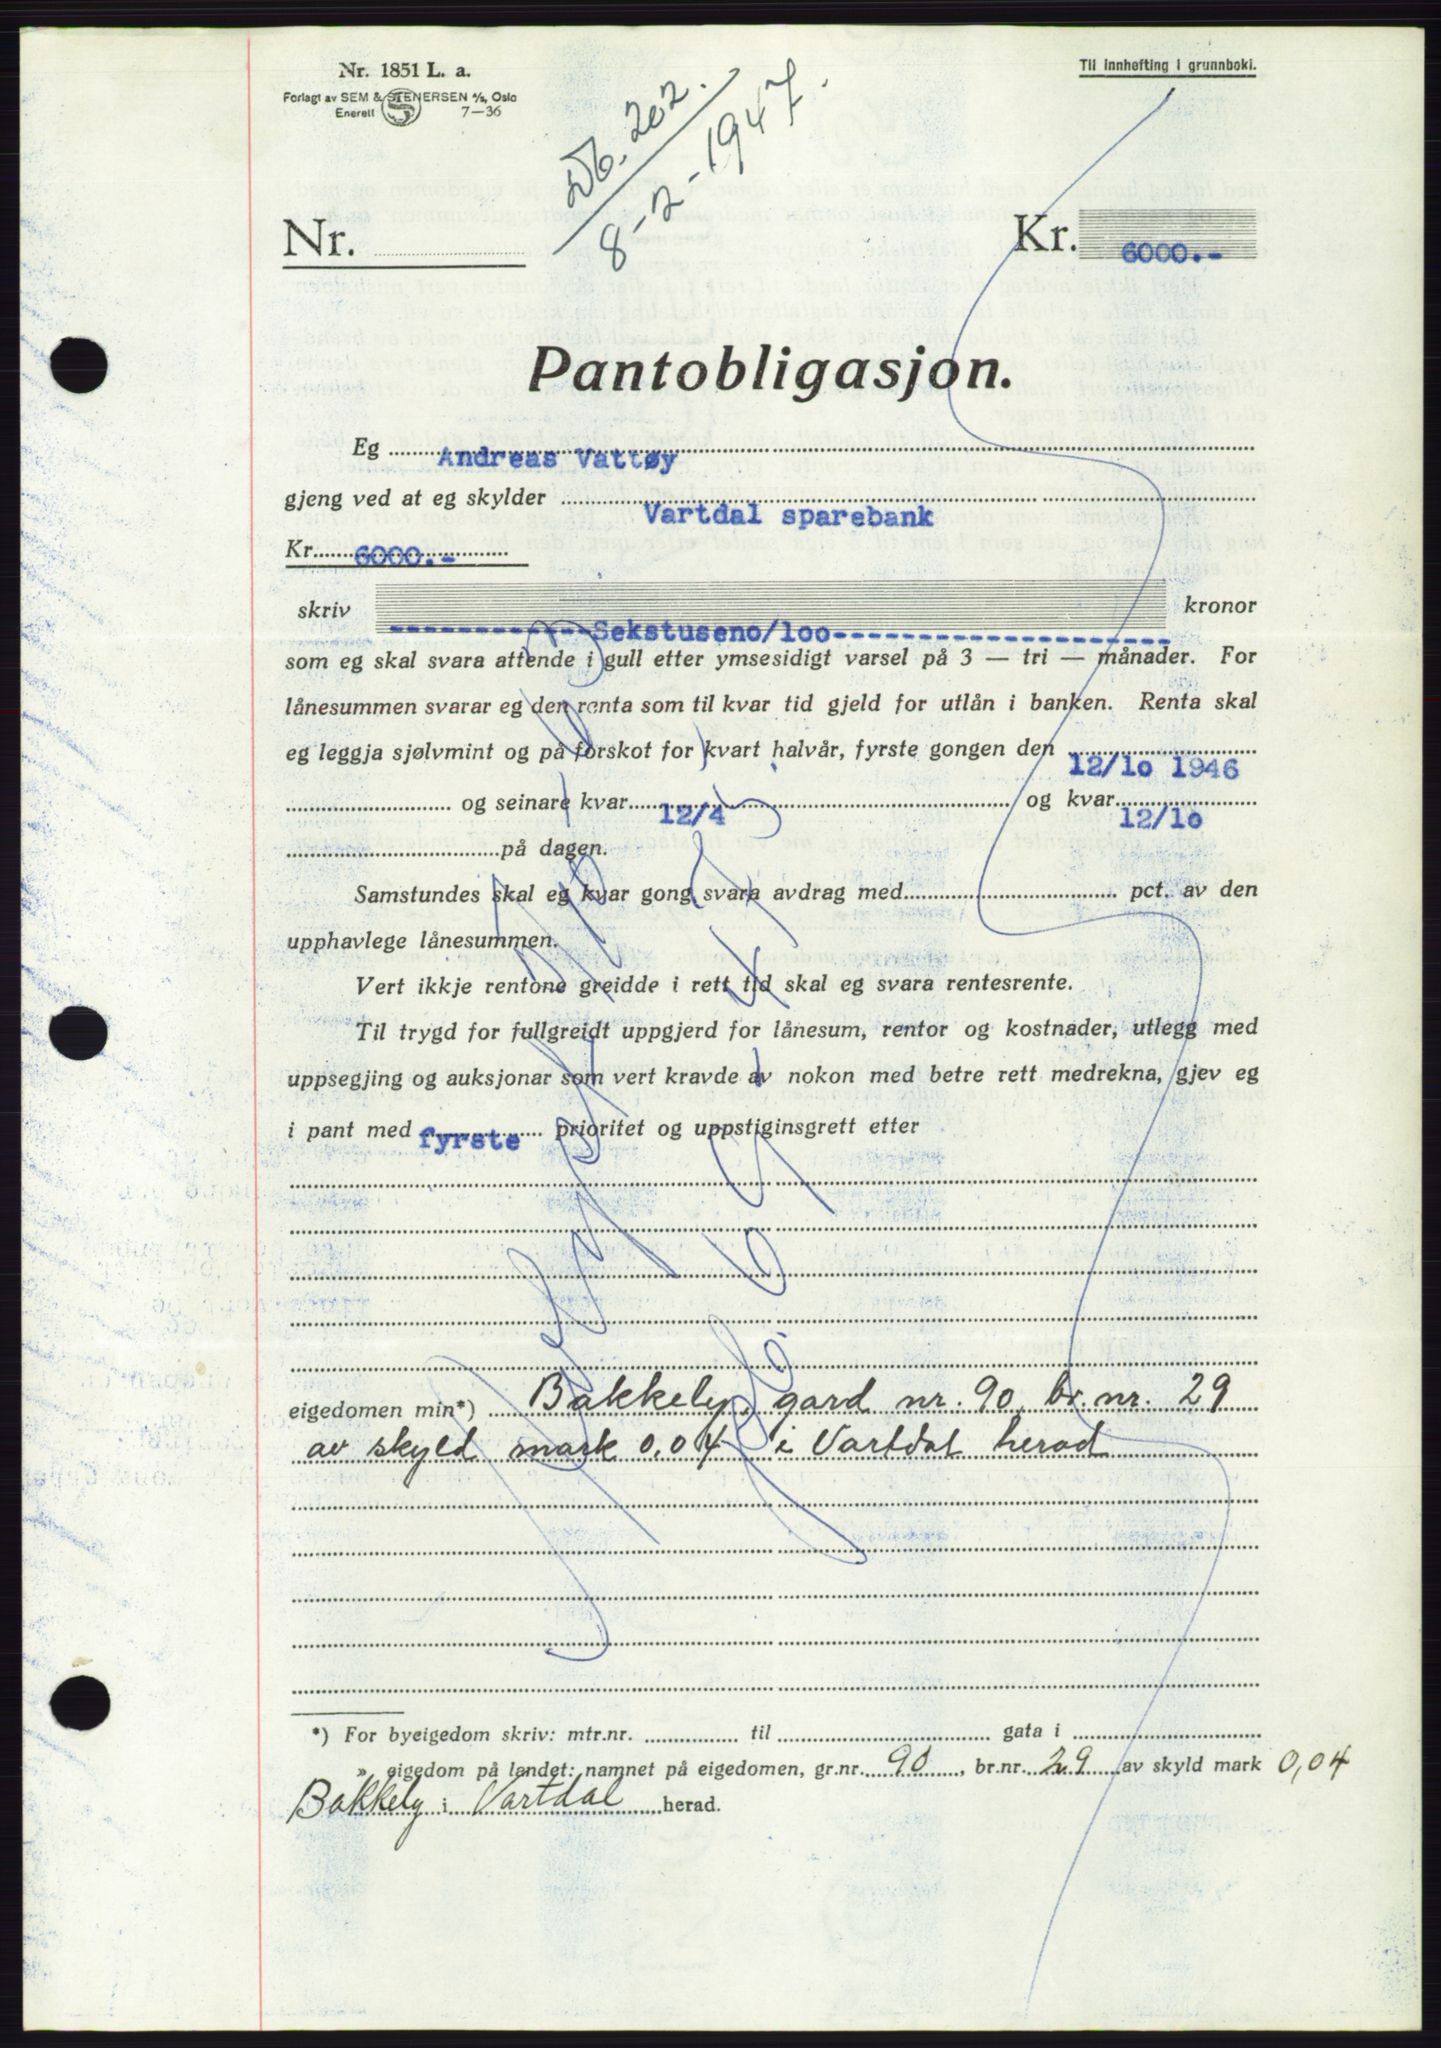 Nr. 1851 L. a.
Forlagt av SEM & STENERSEN A/s, Oslo
Enerett 7—36
Til innhefting i grunnboki.
Db. 202.
8-2-1947.
Nr.
Kr. 6000.-
Pantobligasjon.
Eg Andreas Vattøy
gjeng ved at eg skylder Vartdal sparebank
Kr. 6000.-
skriv ------------Sekstuseno/loo-------------------- kronor
som eg skal svara attende i gull etter ymsesidigt varsel på 3 — tri — månader. For
lånesummen svarar eg den renta som til kvar tid gjeld for utlån i banken. Renta skal
eg leggja sjølvmint og på forskot for kvart halvår, fyrste gongen den 12/lo 1946
og seinare kvar 12/4 og kvar 12/lo
på dagen.
Samstundes skal eg kvar gong svara avdrag med pct. av den
upphavlege lånesummen.
Vert ikkje rentone greidde i rett tid skal eg svara rentesrente.
Til trygd for fullgreidt uppgjerd for lånesum, rentor og kostnader, utlegg med
uppsegjing og auksjonar som vert kravde av nokon med betre rett medrekna, gjev eg
i pant med fyrste prioritet og uppstiginsgrett etter
eigedomen min*) Bakkely, gard nr. 90, br. nr. 29
av skyld mark 0,04 i Vartdal herad
*) For byeigedom skriv: mtr.nr. til gata i
» eigedom på landet: namnet på eigedomen, gr.nr. 90, br.nr. 29 av skyld mark 0,04
Bakkely i Vartdal herad.